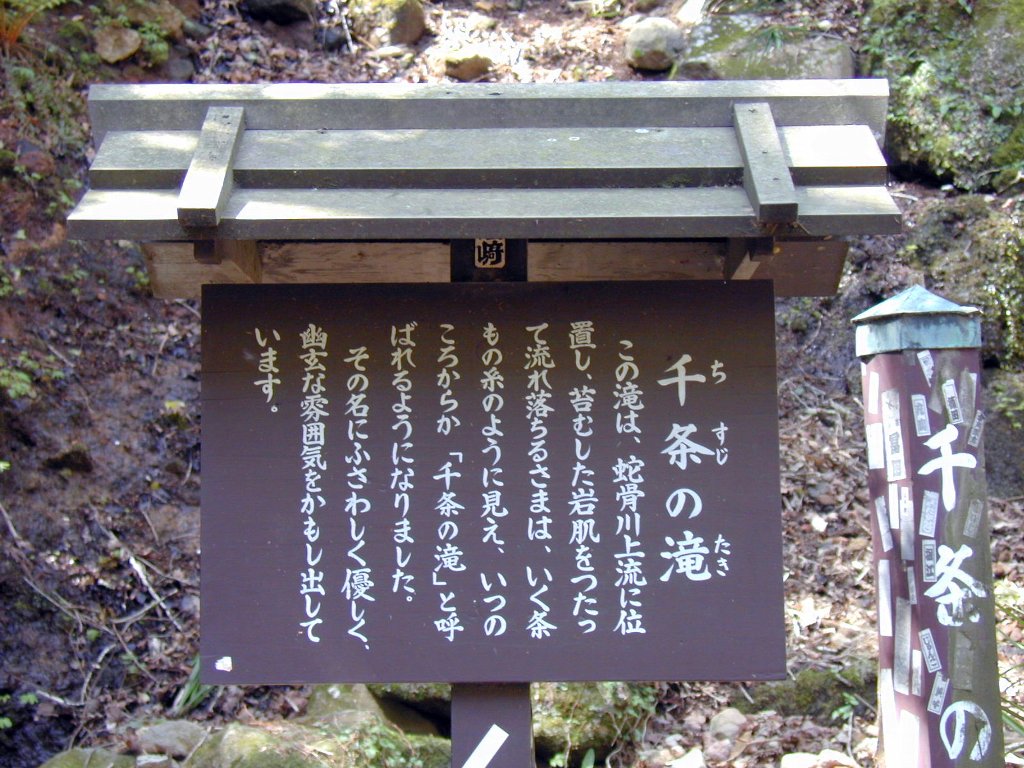 千条の滝
ち すじ たき
この滝は、蛇骨川上流に位
置し、苔むした岩肌をつたっ
て流れ落ちるさまは、いく条
もの糸のように見え、いつの
ころからか「千条の滝」と呼
ばれるようになりました。
その名にふさわしく優しく、
幽玄な雰囲気をかもし出して
います。
千条の